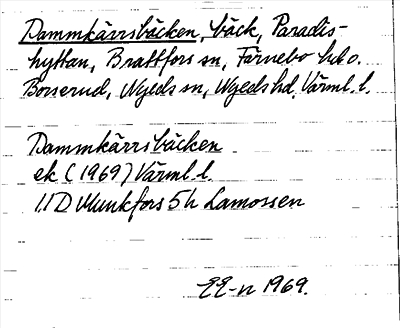 Dammkärrsbäcken, bäck, Paradis-
hyttan, Brattfors sn, Färnebo hd o.
Borserud, Nyeds sn, Nyeds hd, Värml. l.
Dammkärrsbäcken
ek (1969) Värml. l.
11D Munkfors 5h Lamossen
1969.